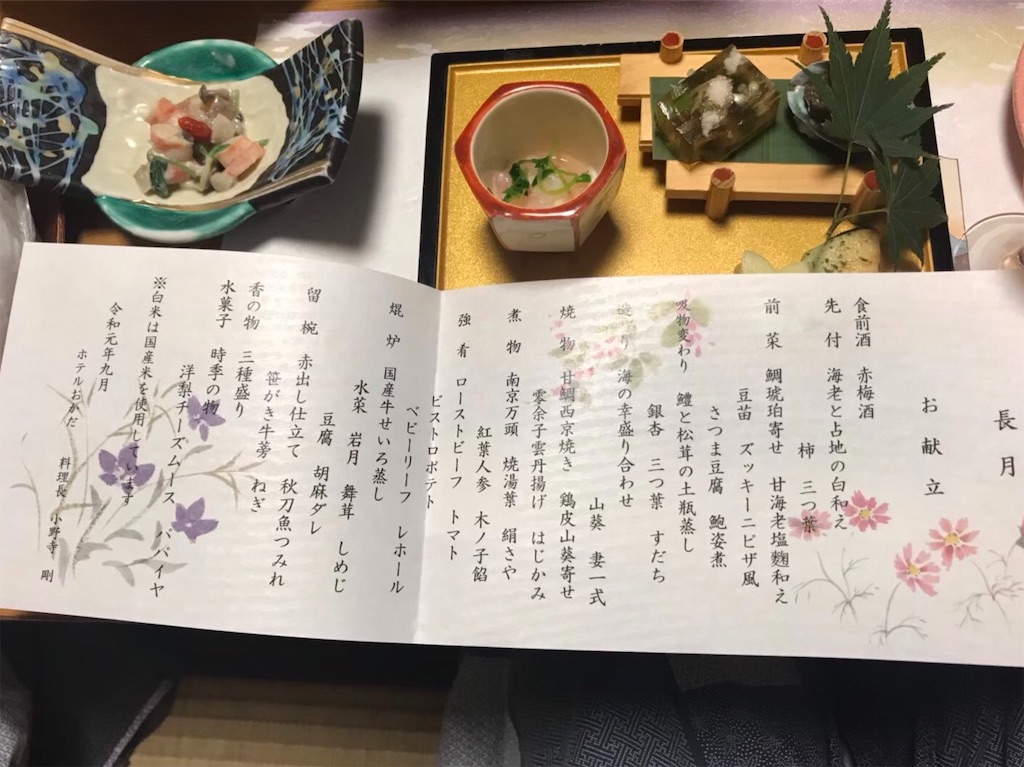 長月
お献立
食前酒 赤梅酒
先付 海老と占地の白和え
柿 三つ葉
前菜 鯛琥珀寄せ 甘海老塩麹和え
豆苗 ズッキーニピザ風
さつま豆腐 鮑姿煮
吸物変わり 鱧と松茸の土瓶蒸し
銀杏 三つ葉 すだち
造り 海の幸盛り合わせ
山葵 妻一式
焼物 甘鯛西京焼き 鶏皮山葵寄せ
零余子雲丹揚げ はじかみ
煮物 南京万頭 焼湯葉 絹さや
紅葉人参 木ノ子餡
強肴 ローストビーフ トマト
ビストロポテト
ベビーリーフ レホール
焜炉 国産牛せいろ蒸し
水菜 岩月 舞茸 しめじ
豆腐 胡麻ダレ
留椀 赤出し仕立て 秋刀魚つみれ
笹がき牛蒡 ねぎ
香の物 三種盛り
水菓子 時季の物
洋梨チーズムース パパイヤ
※白米は国産米を使用しています
令和元年九月
ホテルおかだ
料理長 小野寺 剛